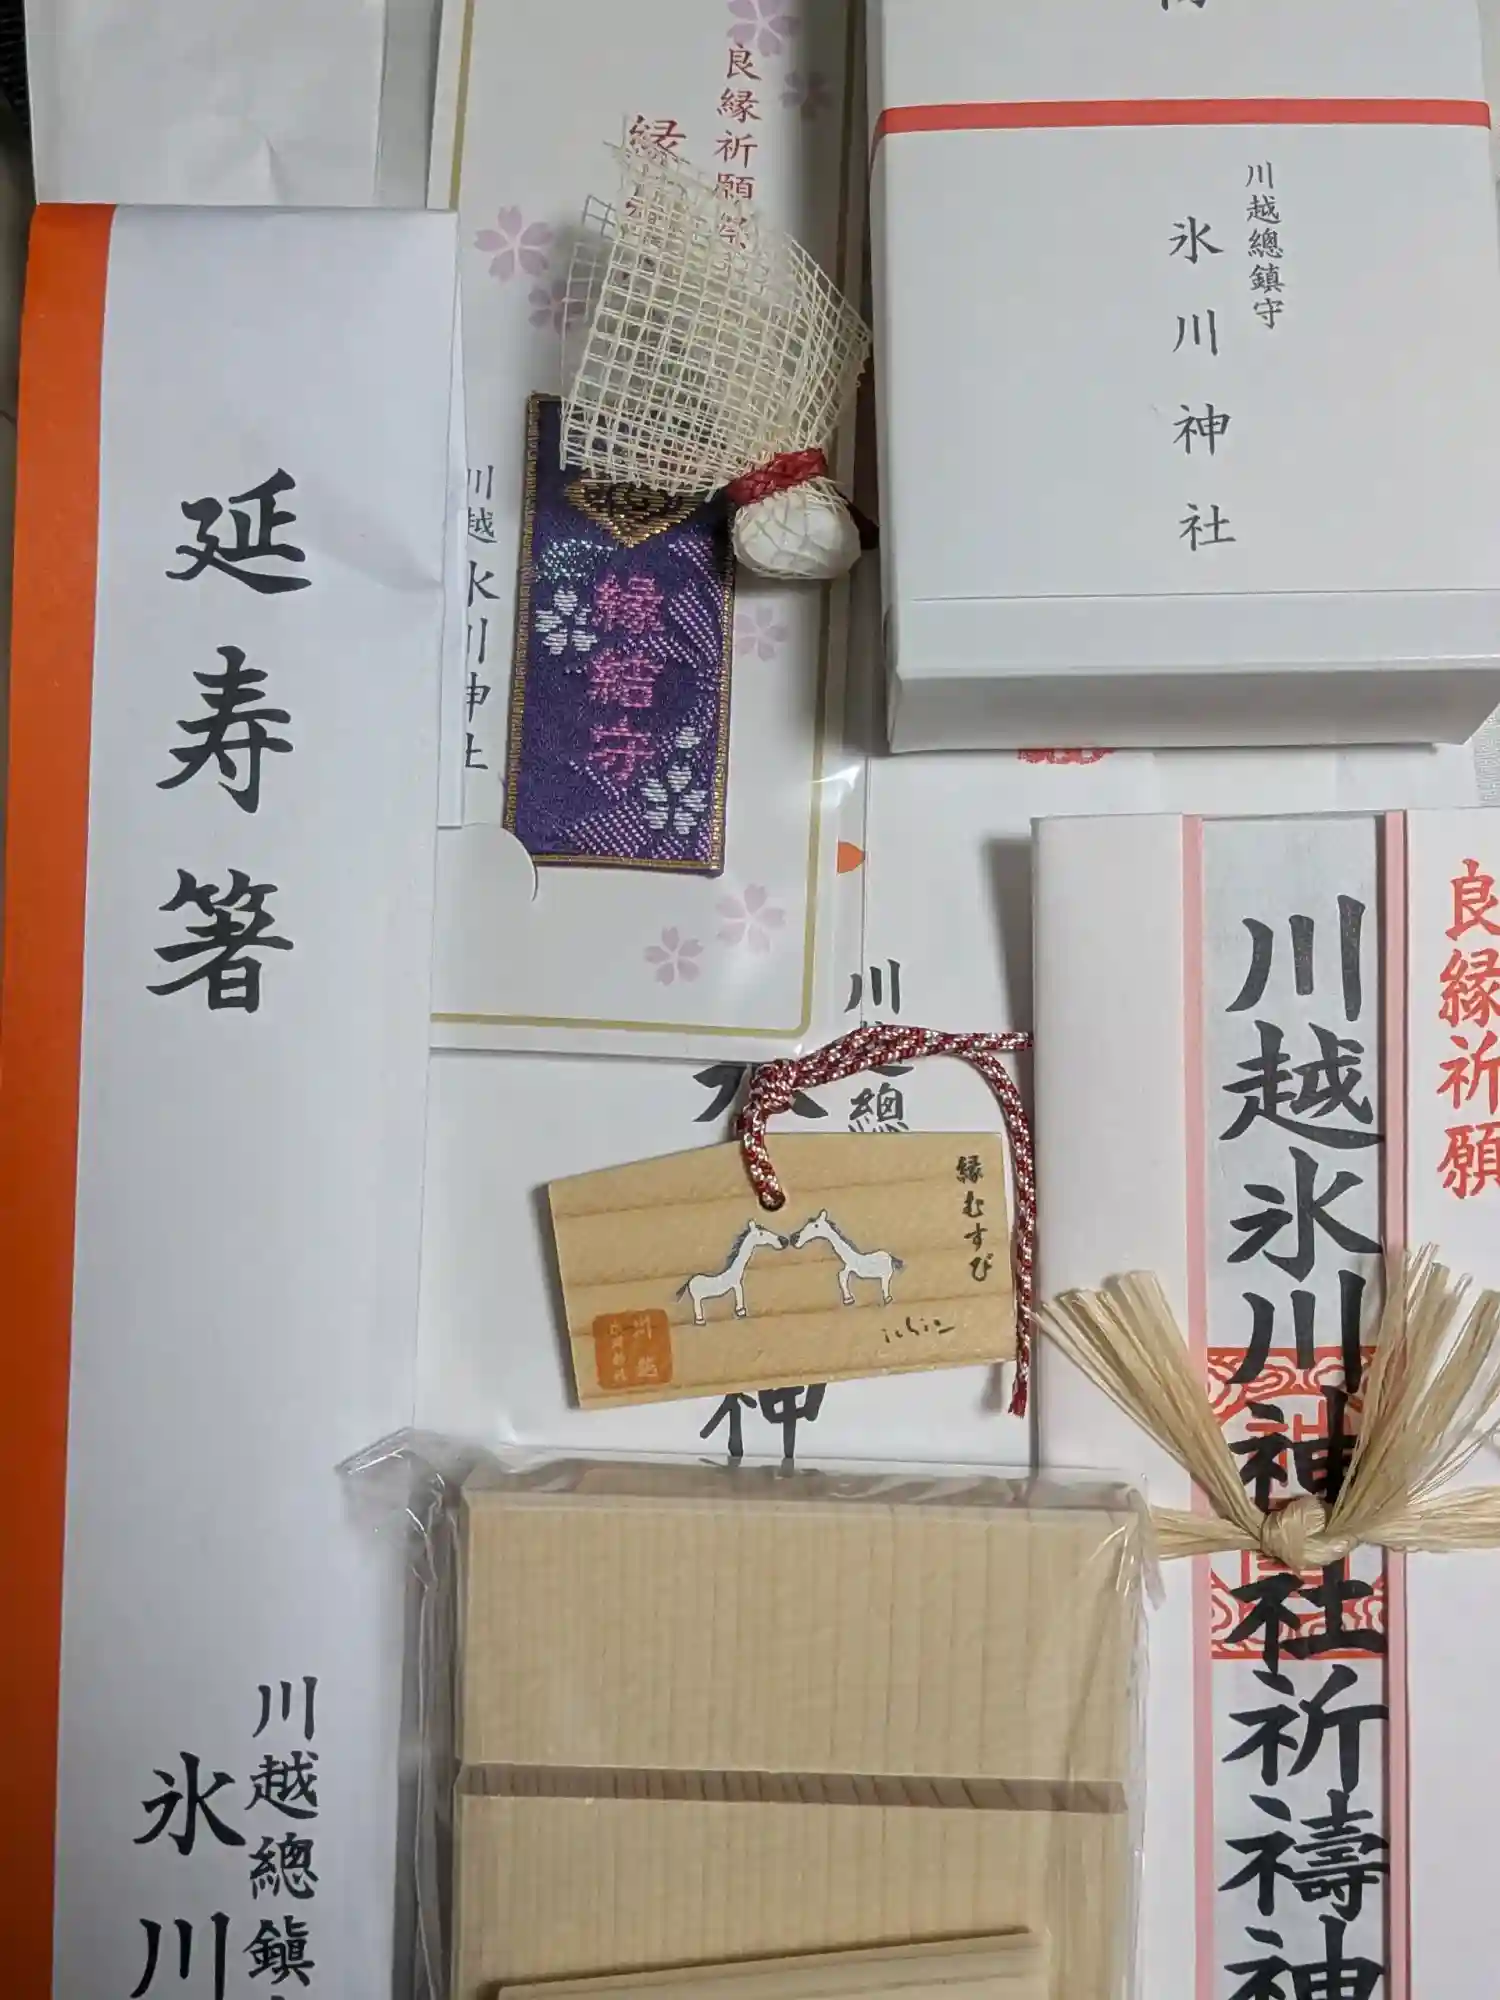 延寿箸
川越總鎮
氷川
良縁祈願祭
縁
川越
氷川神社
縁結守
川越總鎮守
氷川神社
川越總
神
縁むすび
ichie
川越
良縁祈願
川越氷川神社祈禱神